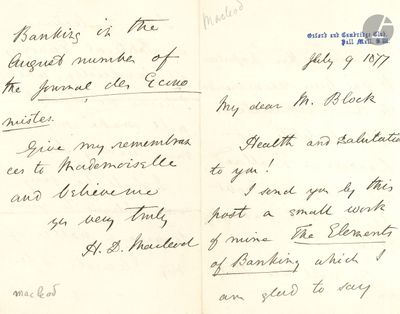 Macleod
Oxford and Cambridge Club,
Pall Mall, S.W.
July 9 1877
My dear M. Block
Health and Salutation
to you!
I send you by this
post a small work
of mine The Elements
of Banking which I
am glad to say
Banking in the
August number of
the Journal des Econo
mistes.
Give my remembran
ces to Mademoiselle
and believe me
yrs very truly
H. D. Macleod
macleod